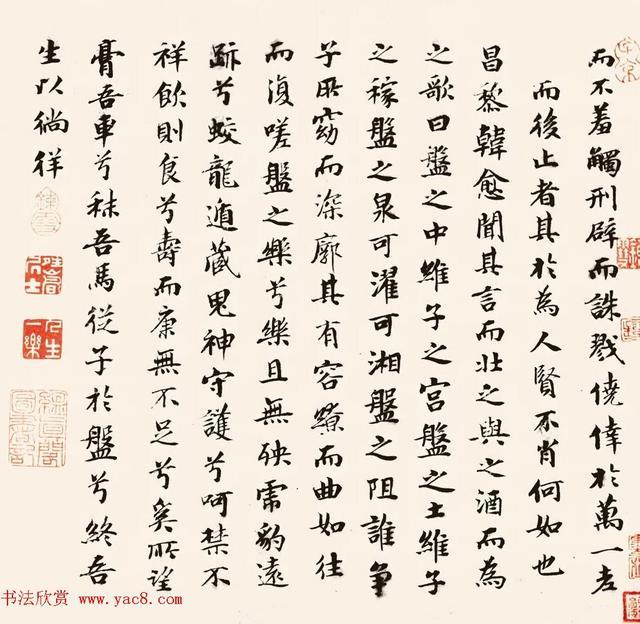 而不羞觸刑辟而誅戮僥倖於萬一老
而後止者其於為人賢不肖何如也
昌黎韓愈聞其言而壯之與之酒而為
之歌曰盤之中維子之宮盤之土維子
之稼盤之泉可濯可湘盤之阻誰爭
子所窈而深廓其有容繚而曲如往
而復嗟盤之樂兮樂且無殃虎豹遠
跡兮蛟龍遁藏鬼神守護兮呵禁不
祥飲則食兮壽而康無不足兮奚所望
膏吾車兮秣吾馬從子於盤兮終吾
生以徜徉
人生一樂
书法欣赏 www.yac8.com